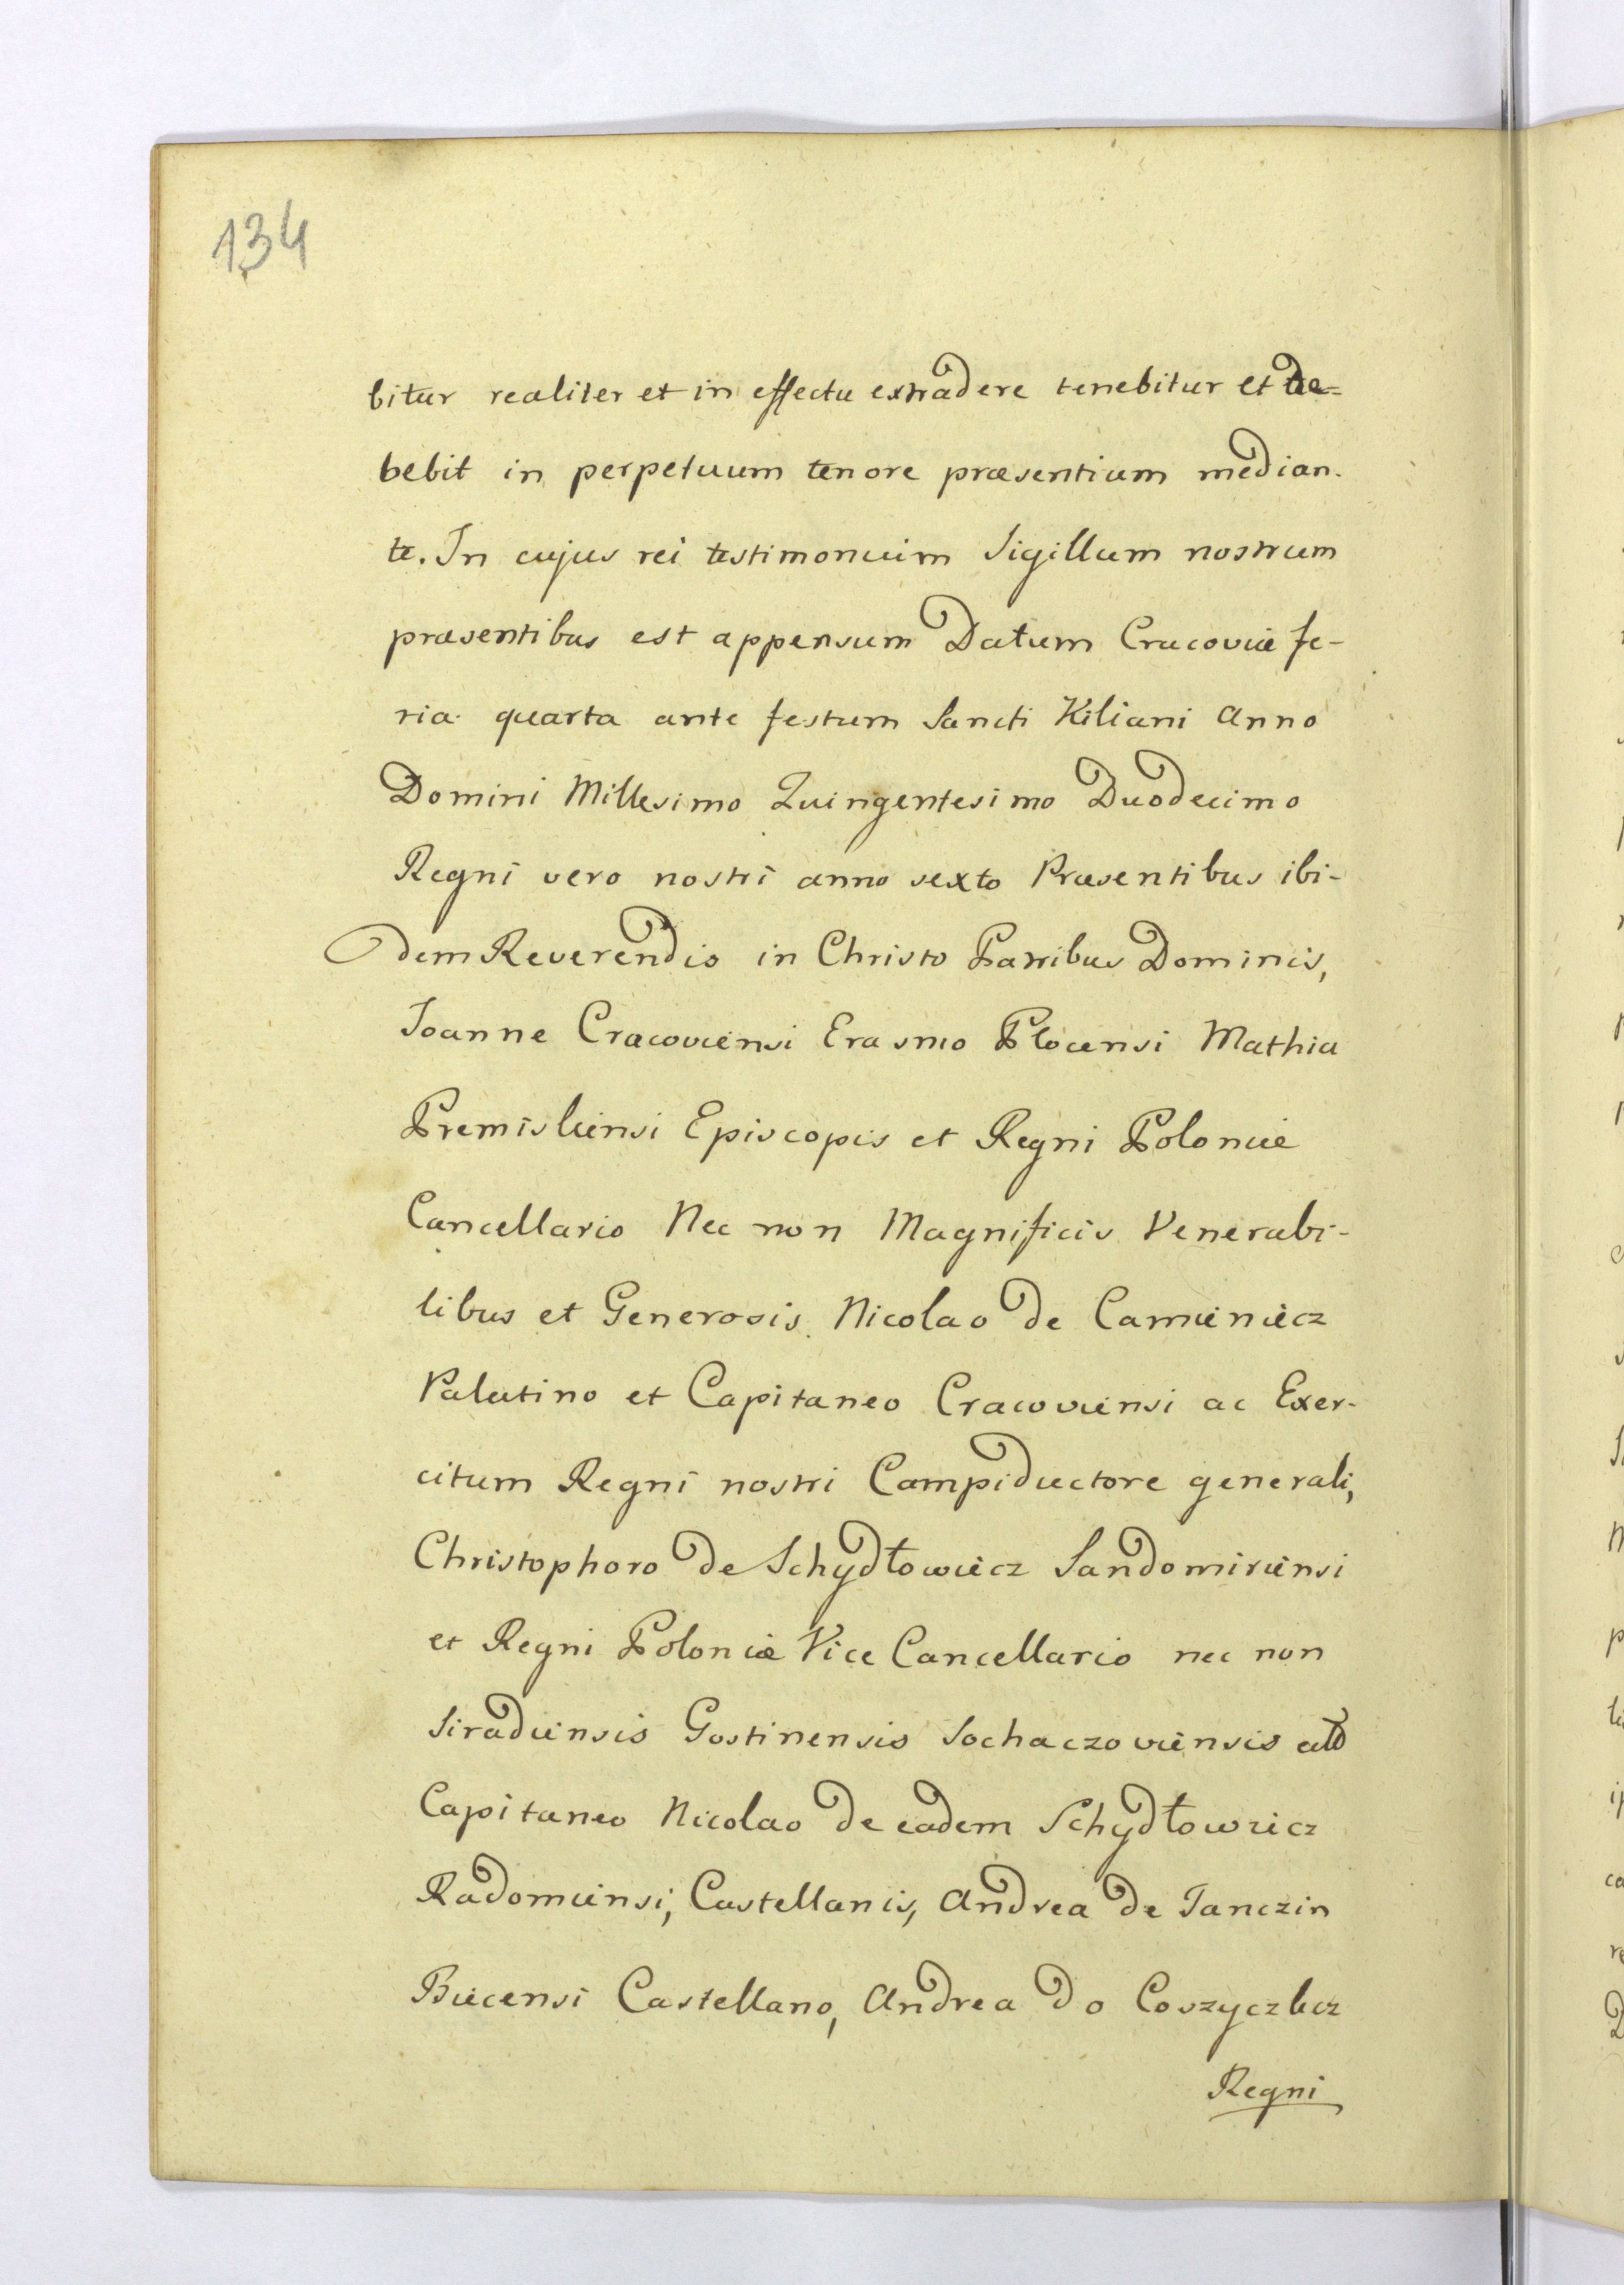 134
bitur realiter et in effectu extradere tenebitur et de-
bebit in perpetuum tenore præsentium median-
te. In cujus rei testimonium Sigillum nostrum
præsentibus est appensum Datum Cracoviæ fe-
ria quarta ante festum Sancti Kiliani Anno
Domini Millesimo Quingentesimo Duodecimo
Regni vero nostri anno sexto Præsentibus ibi-
dem Reverendis in Christo Patribus Dominis,
Joanne Cracoviensi Erasmo Plocensi Mathia
Premisliensi Episcopis et Regni Poloniæ
Cancellario Nec non Magnificis Venerabi-
libus et Generosis Nicolao de Camieniecz
Palatino et Capitaneo Cracoviensi ac Exer-
citum Regni nostri Campiductore generali,
Christophoro de Schydłowiecz Sandomiriensi
et Regni Poloniæ Vice Cancellario nec non
Siradiensis Gostinensis Sochaczoviensis
Capitaneo Nicolao de eadem Schydłowiecz
Radomiensi, Castellanis, Andrea de Tanczin
Biecensi Castellano, Andrea do Coszyczlicz
Regni